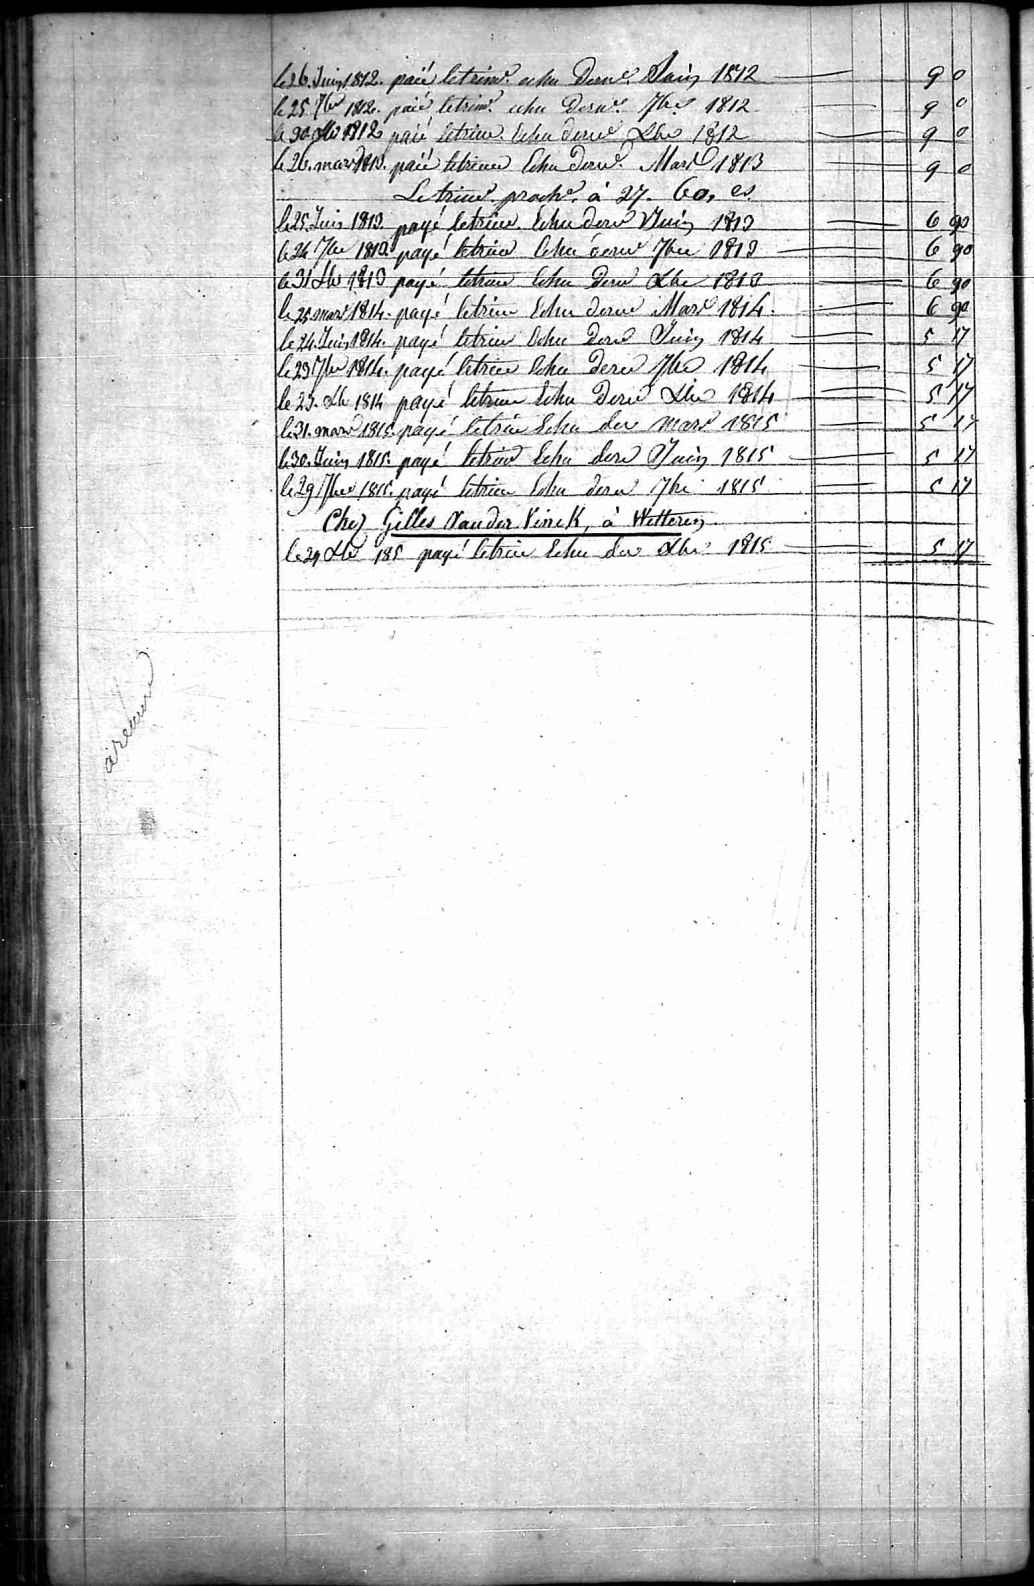 le 26. Juin 1812. paié le trim.e echu Dern.r Juin 1812 — 9 0
le 25. 7bre 1812. paié le trim.e echu Dern.r 7bre 1812 — 9 0
le 30 Xbre 1812 paié le trim. Echu dern.r Xbre 1812 — 9 0
le 26. mars 1813. paié le trim Echu Dern.r Mars 1813 — 9 0
Le trim.e proch.e à 27. 60. cs.
le 25. Juin 1813. payé le trim. Echu dern Juin 1813 — 6 90
le 24 7bre 1813. payé le trim Echu dern 7bre 1813 — 6 90
le 31 Xbre 1813 payé le trim Echu Dern Xbre 1813 — 6 90
le 25 mars 1814. payé le trim Echu dern Mars 1814. — 6 90
le 24. Juin 1814. payé le trim Echu Dern Juin 1814 — 5 17
le 23 7bre 1814. payé le trim Echu Dern 7bre 1814 — 5 17
le 23. Xbre 1814 payé le trim Echu Dern Xbre 1814 — 5 17
le 31. mars 1815. payé le trim Echu der mars 1815 — 5 17
le 30. Juin 1815. payé le trim Echu dern Juin 1815 — 5 17
le 29 7bre 1815. payé le trim Echu dern 7bre 1815 — 5 17
Chez Gilles Vander Vinck, à Wetteren
le 29 Xbre 185 payé le trim Echu der Xbre 1815 — 5 17